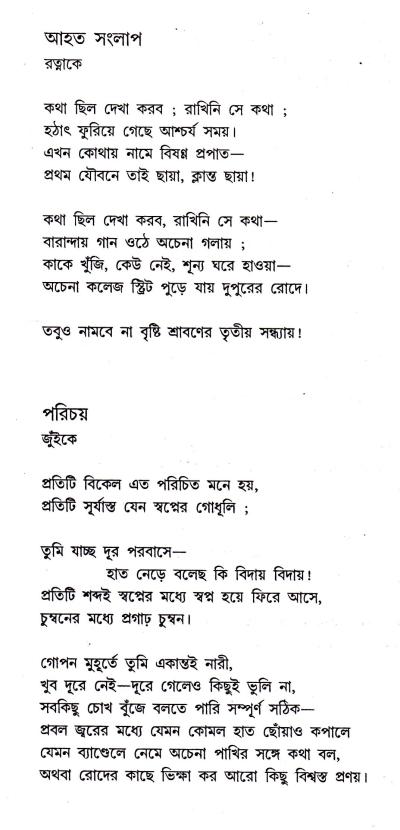 আহত সংলাপ
রত্নাকে
কথা ছিল দেখা করব ; রাখিনি সে কথা ;
হঠাৎ ফুরিয়ে গেছে আশ্চর্য সময়।
এখন কোথায় নামে বিষণ্ণ প্রপাত—
প্রথম যৌবনে তাই ছায়া, ক্লান্ত ছায়া!
কথা ছিল দেখা করব, রাখিনি সে কথা—
বারান্দায় গান ওঠে অচেনা গলায় ;
কাকে খুঁজি, কেউ নেই, শূন্য ঘরে হাওয়া—
অচেনা কলেজ স্ট্রিট পুড়ে যায় দুপুরের রোদে।
তবুও নামবে না বৃষ্টি শ্রাবণের তৃতীয় সন্ধ্যায়!
পরিচয়
জুঁইকে
প্রতিটি বিকেল এত পরিচিত মনে হয়,
প্রতিটি সূর্যাস্ত যেন স্বপ্নের গোধূলি ;
তুমি যাচ্ছ দূর পরবাসে—
হাত নেড়ে বলেছ কি বিদায় বিদায়!
প্রতিটি শব্দই স্বপ্নের মধ্যে স্বপ্ন হয়ে ফিরে আসে,
চুম্বনের মধ্যে প্রগাঢ় চুম্বন।
গোপন মুহূর্তে তুমি একান্তই নারী,
খুব দূরে নেই—দূরে গেলেও কিছুই ভুলি না,
সবকিছু চোখ বুঁজে বলতে পারি সম্পূর্ণ সঠিক—
প্রবল জ্বরের মধ্যে যেমন কোমল হাত ছোঁয়াও কপালে
যেমন ব্যাণ্ডেলে নেমে অচেনা পাখির সঙ্গে কথা বল,
অথবা রোদের কাছে ভিক্ষা কর আরো কিছু বিশ্বস্ত প্রণয়।